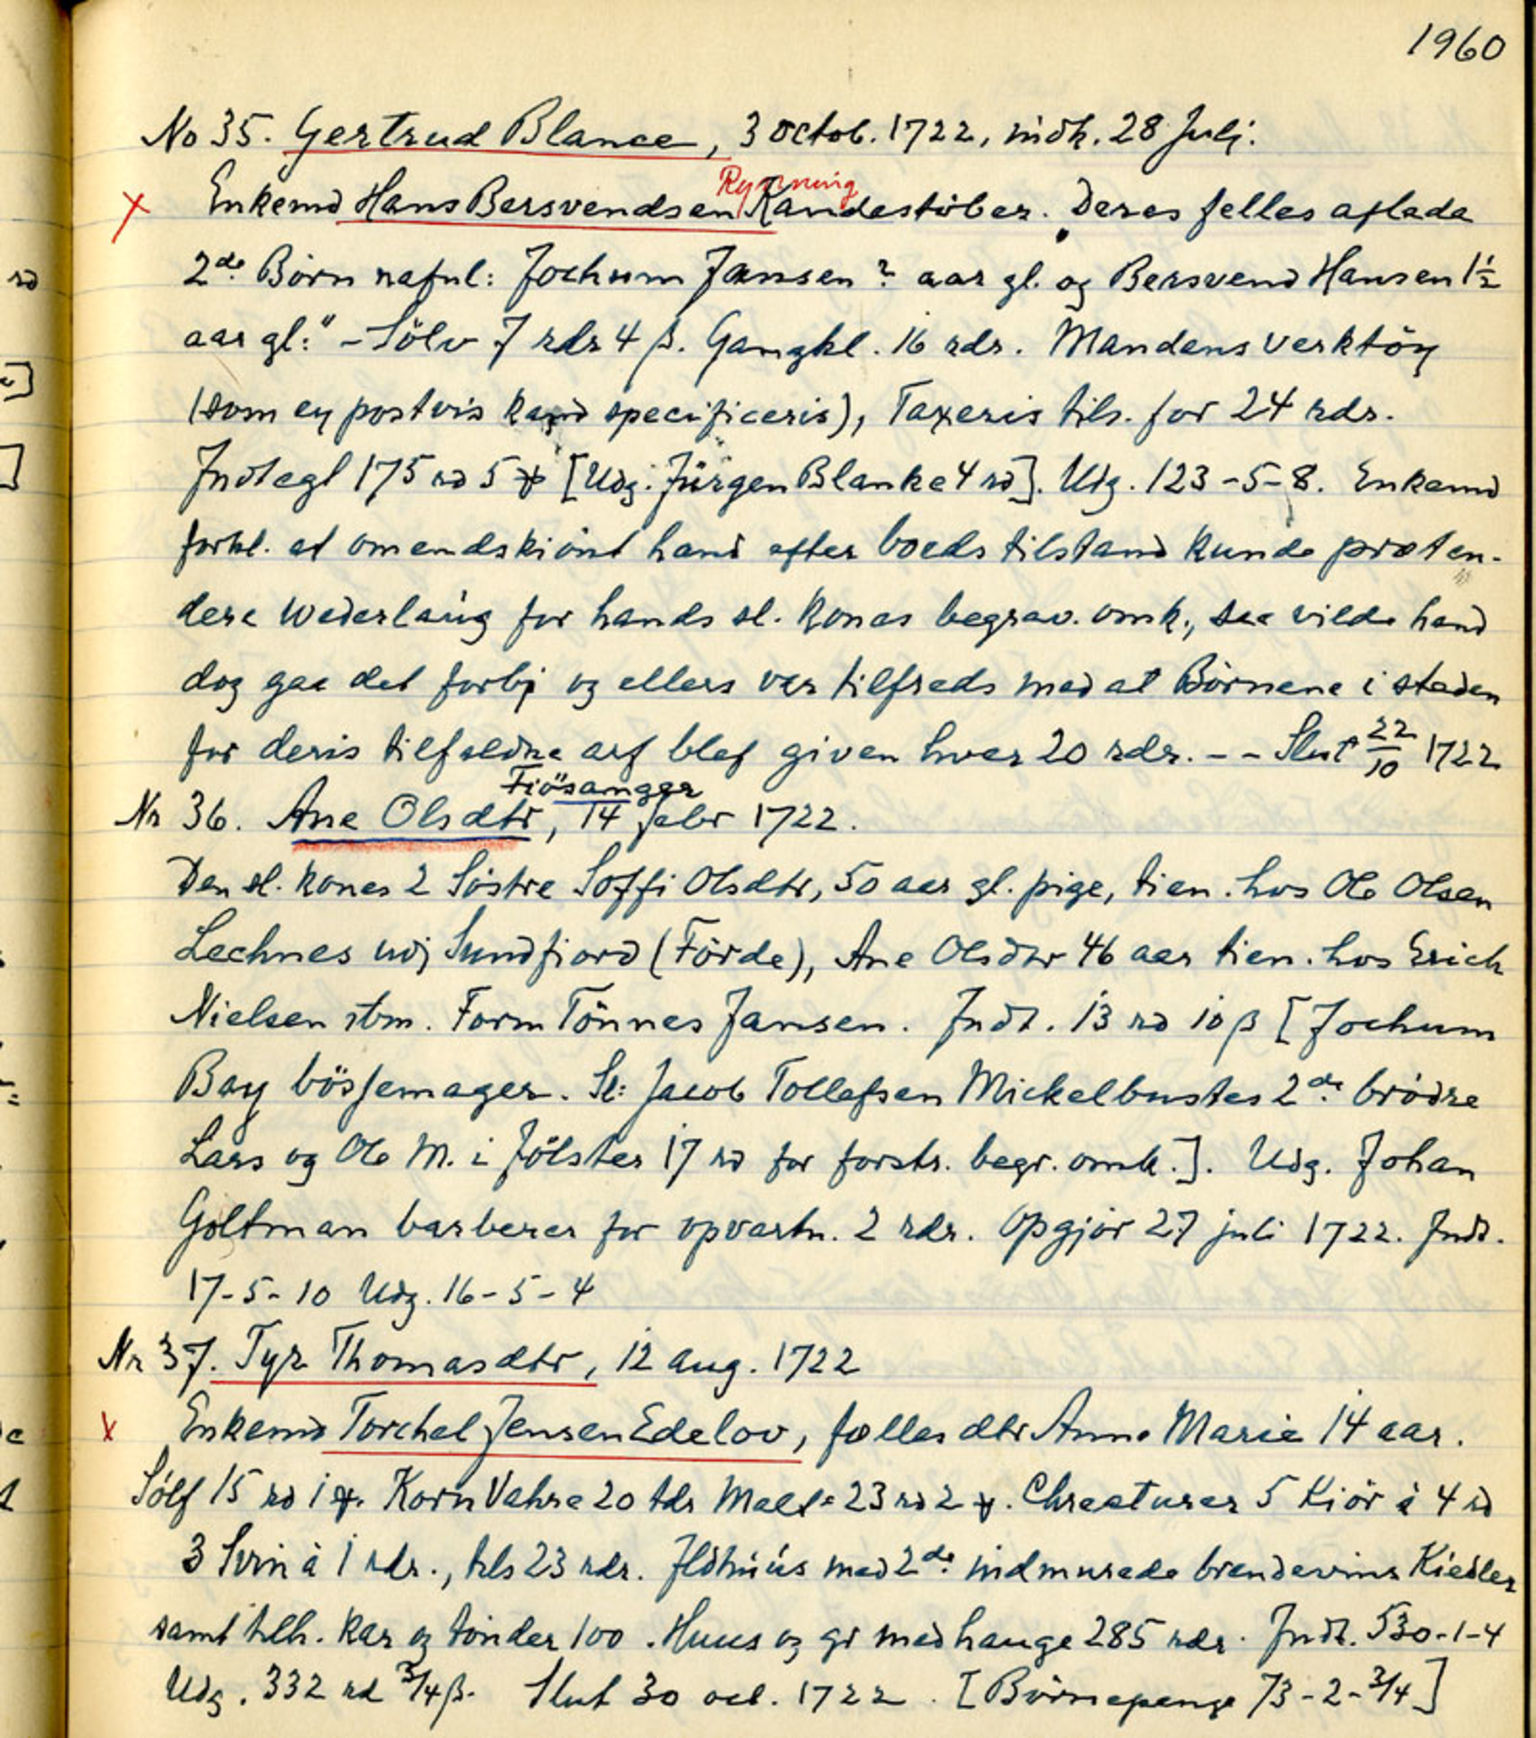 1960
No 35. Gertrud Blance, 3 octob. 1722, indk. 28 Julj.
Rynning
x Enkemd Hans Bersvendsen Kandestöber. Deres felles aflada
2de Börn nafnl: Jochum Jansen ? aar gl. og Bersvend Hansen 1½
aar gl:" - Sölv 7 rdr 4 β. Gangkl. 16 rdr. Mandens verktöy
(som ey postvis kand specificeris), Taxeris tils. for 24 rdr.
Indtegt 175 rd 5 [Udg. Jürgen Blanke 4 rd]. Udg. 123-5-8. Enkemd
forkl. at omendskiönt hand efter boeds tilstand kunde præten-
dere Wederlaug for hands sl. Kones begrav. omk., saa vilde hand
dog gaa det forbj og ellers var tilfreds med at Börnene i staden
for deris tilfaldne arf blef given hver 20 rdr. - - Slut 22/10 1722
Fiösanger
Nr 36. Ane Olsdtr, 14 febr 1722.
Den sl. kones 2 Söstre Soffi Olsdtr, 50 aar gl. pige, tien. hos Ole Olsen
Lechnes udj Sundfjord (Förde), Ane Olsdtr 46 aar tien. hos Erich
Nielsen stm. Form Tönnes Jansen. Indt. 13 rd 10 β [Jochum
Bay bössemager. Sl: Jacob Tollefsen Mickelbustes 2de brödre
Lars og Ole M. i Jölster 17 rd for forstr. begr. omk.]. Udg. Johan
Goltman barberer for opvartn. 2 rdr. Opgjör 27 juli 1722. Indt.
17-5-10 Udg. 16-5-4
Nr 37. Tyr Thomasdtr, 12 aug. 1722
x Enkemd Torchel Jensen Edelov, fælles dtr Anne Marie 14 aar.
Sölf 15 rd 1 Korn Vahre 20 tdr Malt = 23 rd 2. Chreaturer 5 Kiör à 4 rd
3 Svin à 1 rdr., tils 23 rdr. Ildhuus med 2de indmurede brendevins Kiedler
samt tilh. kar og tönder 100. Huus og gr med hauge 285 rdr. Indt. 530-1-4
Udg. 332 rd 3/4 β. Slut 30 oct. 1722. [Börnepenge 73-2-3/4]